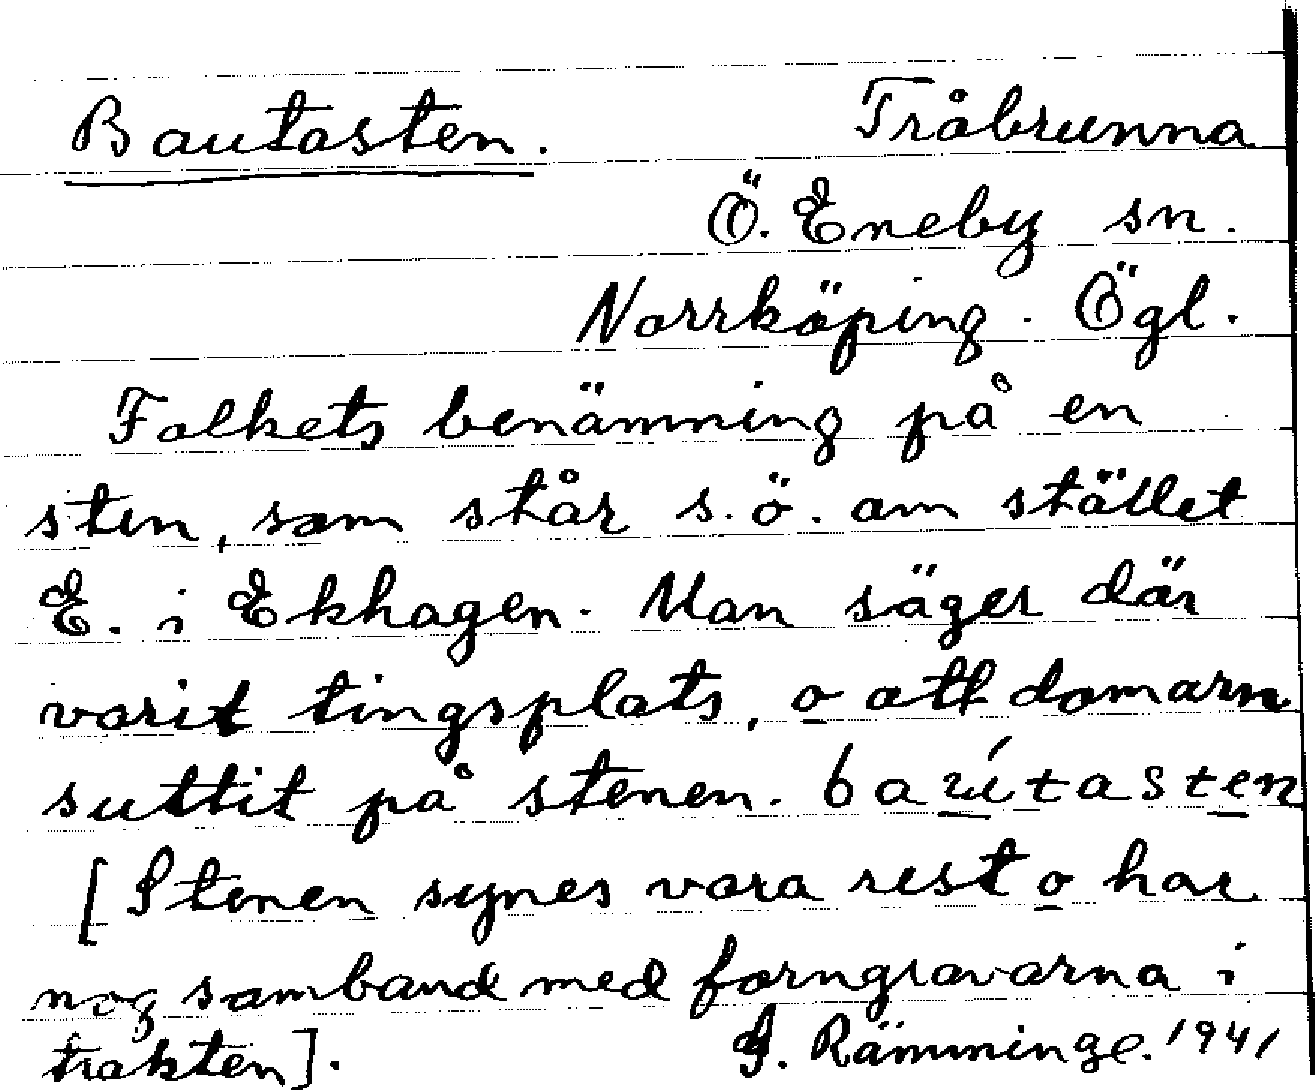 Bautasten. Tråbrunna
Ö. Eneby sn.
Norrköping. Ögl.
Folkets benämning på en
sten, som står s.ö. om stället
E. i Ekhagen. Man säger där
varit tingsplats, o att domarn
suttit på stenen. baútasten
[Stenen synes vara rest o har
nog samband med forngravarna i
trakten]. G. Rämminge. 1941